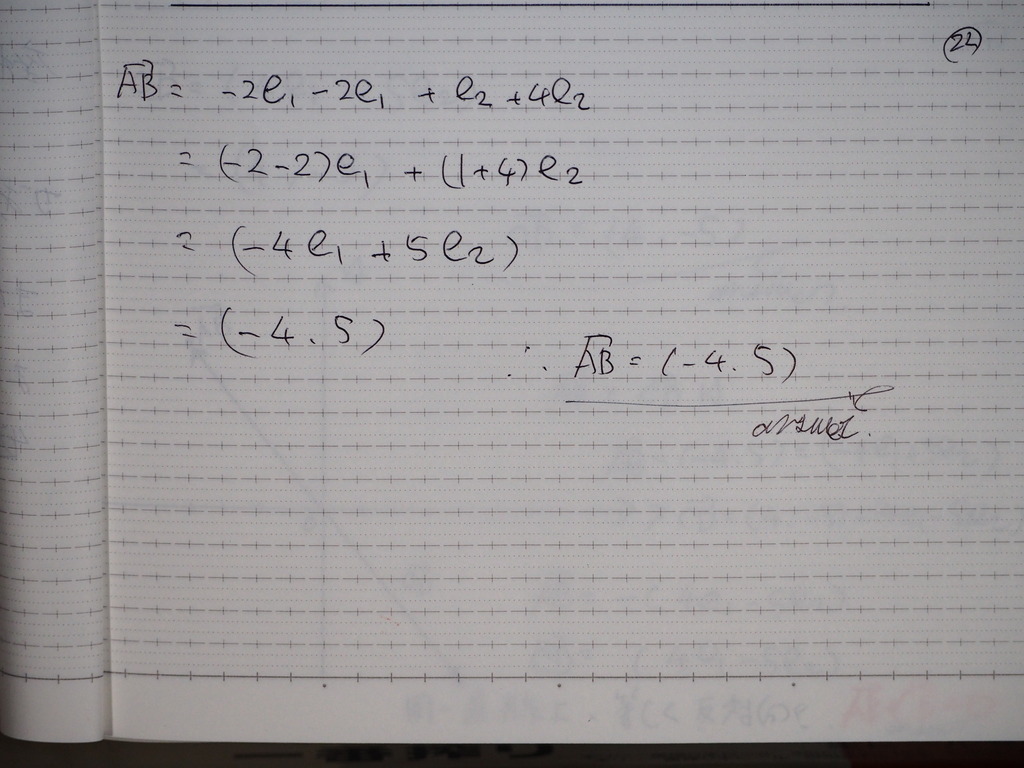 22
AB = -2e₁ - 2e₁ + e₂ + 4e₂
= (-2-2)e₁ + (1+4)e₂
= (-4e₁ + 5e₂)
= (-4. 5)
∴ AB = (-4. 5)
answer.